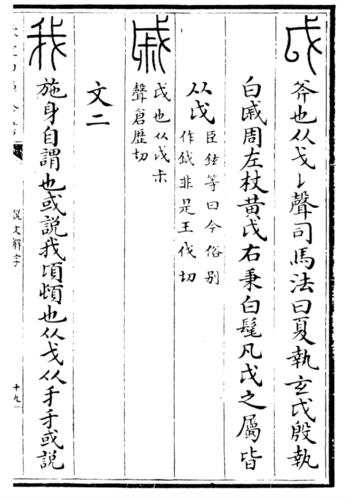 戉 斧也从戈𠄌聲司馬法曰夏執玄戉殷執
白戚周左杖黃戉右秉白髦凡戉之屬皆
从戉 臣鉉等曰今俗別
作鉞非是王伐切
戚 戉也从戉尗
聲倉歴切
文二
我 施身自謂也或說我頃頓也从戈从手手或說
說文解字
十九